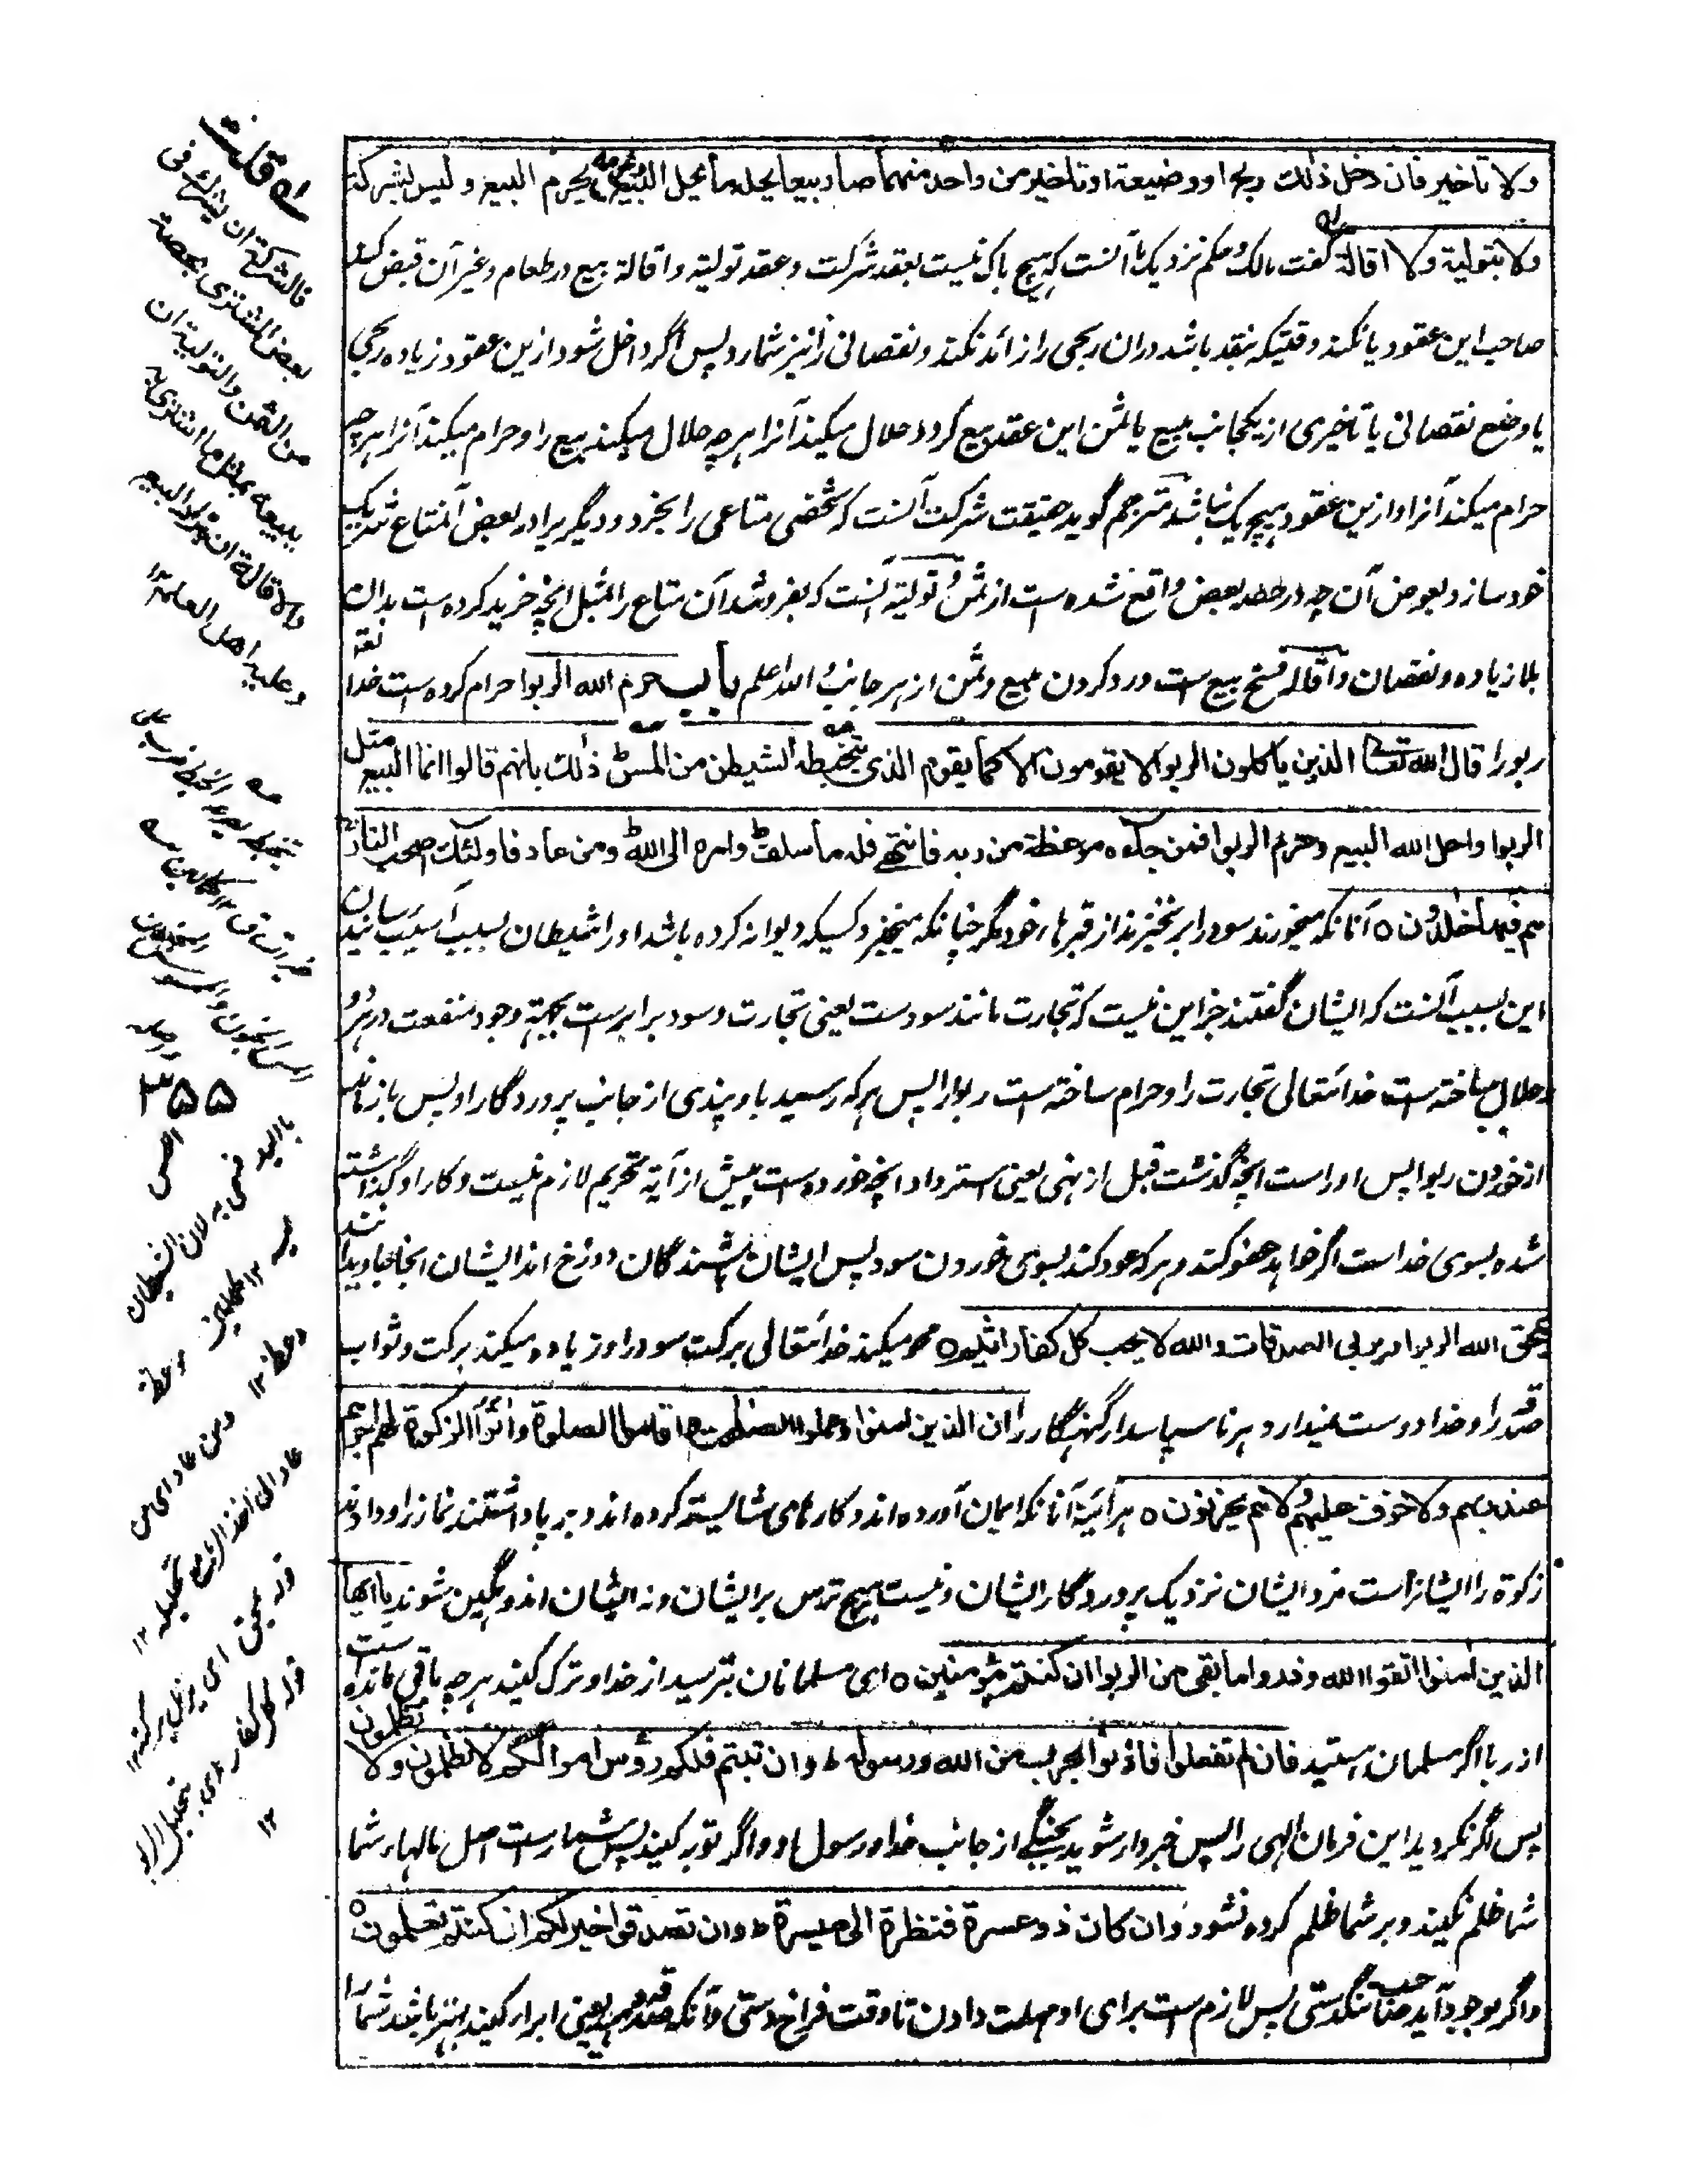 ولا تاخیر فان دخل ذلك ربح او وضیعة او تاخیر من واحد منهما صار بیعا یحله ما یحل البیع ویحرمه ما یحرم البیع ولیس بشركة
ولا بتولیة ولا اقالة گفت مالک حکم نزدیک ما آنست که هیچ باک نیست بعقد شرکت وعقد تولیة واقالة بیع در طعام وغیر آن قبض کند
صاحب این عقود یا نکند وقتیکه بنقد باشد دران ربحی را زائد نکند ونقصانی را نیز شمارد پس اگر داخل شود ازین عقود زیاده ربحی
یا وضع نقصانی یا تاخیری از یکجانب مبیع یا ثمن این عقد بیع گردد حلال میکند آنرا هرچه حلال میکند بیع را وحرام میکند آنرا هرچه
حرام میکند آنرا وازین عقود هیچ یک نباشد مترجم گوید حقیقت شرکت آنست که شخصی متاعی را بخرد ودیگریرا در بعض آنمتاع شریک
خود سازد بعوض آن چه در حصه بعض واقع شده است از ثمن وتولیة آنست که بفروشد آن متاع را بمثل آنچه خرید کرده است بدان
بلا زیاده ونقصان واقاله فسخ بیع است ورد کردن مبیع وثمن از هر جانب والله اعلم باب حرم الله الربوا حرام کرده است خدا
ربو را قال الله تعالی الذین یاکلون الربوا لا یقومون الا کما یقوم الذی یتخبطه الشیطن من المس ذلك بانهم قالوا انما البیع مثل
الربوا واحل الله البیع وحرم الربوا فمن جاءه موعظة من ربه فانتهی فله ما سلف وامره الی الله ومن عاد فاولئك اصحب النار
هم فیها خلدون ٥ آنانکه میخورند سود را بر نخیزند از قبرهاء خود مگر چنانکه میخیزد کسیکه دیوانه کرده باشد او را شیطان بسبب آسیب رسانیدن
این بسبب آنست که ایشان گفتند جز این نیست که تجارت مانند سودست یعنی تجارت وسود برابرست بجهة وجود منفعت در هر دو
وحلال ساخته است خدا تعالی تجارت را وحرام ساخته است ربوا را پس هرکه رسید باو پندی از جانب پروردگار او پس باز ماند
از خوردن ربوا پس او راست آنچه گذشت قبل از نهی یعنی استرداد آنچه خورده است پیش از آیة تحریم لازم نیست وکار او گذاشته
شده بسوی خداست اگر خواهد عفو کند وهرکه عود کند بسوی خوردن سود پس ایشان باشندگان دوزخ اند ایشان آنجا جاویدانند
یمحق الله الربوا ویربی الصدقات والله لا یحب کل کفار اثیم ٥ محو میکند خدا تعالی برکت سود را وزیاده میکند برکت وثواب
صدقه را وخدا دوست نمیدارد هر ناسپاسدار گنهگار را ان الذین امنوا وعملوا الصلحت واقاموا الصلوة واتوا الزکوة لهم اجرهم
عند ربهم ولا خوف علیهم ولا هم یحزنون ٥ هر آئینه آنانکه ایمان آورده اند وکارهای شایسته کرده اند وبرپا داشتند نماز را ودادند
زکوة را ایشانراست مزد ایشان نزدیک پروردگار ایشان ونیست هیچ ترس بر ایشان ونه ایشان اندوهگین شوند یا ایها
الذین امنوا اتقوا الله وذروا ما بقی من الربوا ان کنتم مؤمنین ٥ ای مسلمانان بترسید از خدا وترک کنید هرچه باقی مانده است
از ربا اگر مسلمان هستید فان لم تفعلوا فاذنوا بحرب من الله ورسوله ط وان تبتم فلکم رؤس اموالکم لا تظلمون ولا تظلمون
پس اگر نکردید این فرمان الهی را پس خبردار شوید بجنگی از جانب خدا ورسول او واگر توبه کنید پس شماراست اصل مالهاء شما
شما ظلم نکنید وبر شما ظلم کرده نشود وان کان ذو عسرة فنظرة الی میسرة ط وان تصدقوا خیر لکم ان کنتم تعلمون ٥
واگر بوجود آید صاحب تنگدستی پس لازم است برای او مهلت دادن تا وقت فراخ دستی وآنکه صدقه دهید یعنی ابرار کنید بهتر باشد شما را
قلت
فالشركة ان یشرك فی
بعض المشتری بحصته
من الثمن والتولیة ان
یبیعه بمثل ما اشتری به
والاقالة ان
وعلیه اهل العلم ١٢
٣٥٥